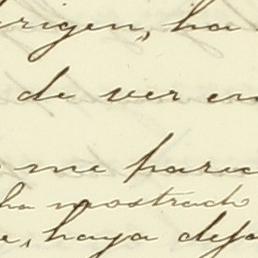 origen, ha
de ver en
me parec
ha mostrado
e, haya deja